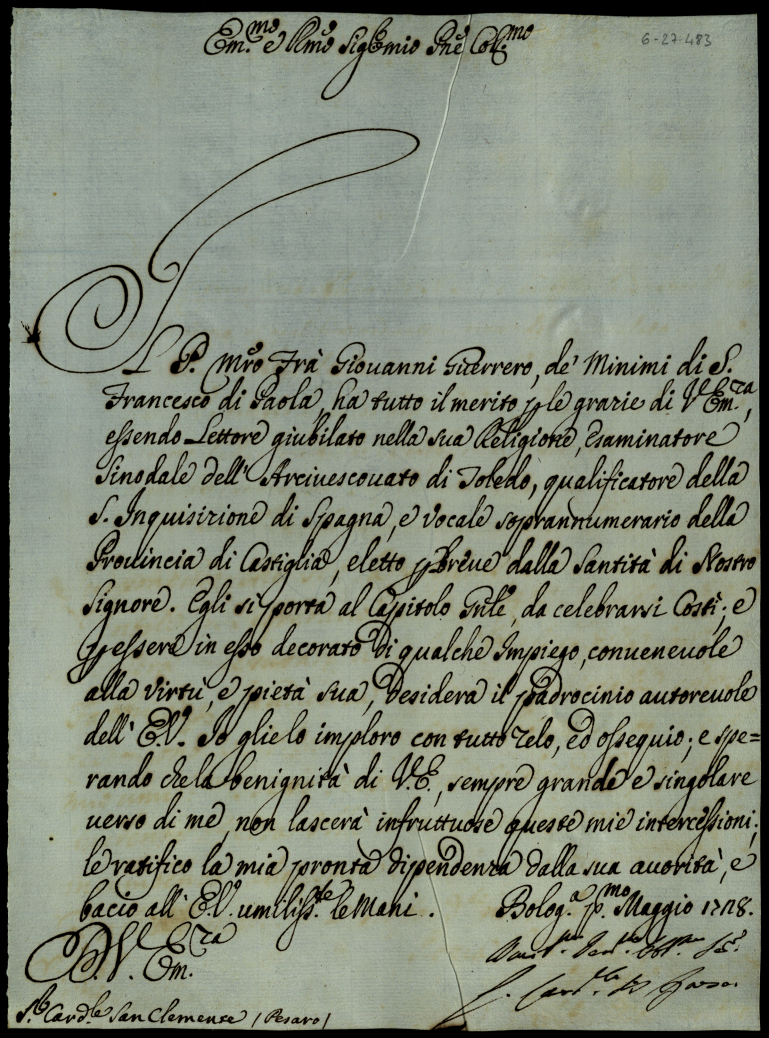 Em.mo e Rmo Sig.e mio Pne Col.mo
6-27-483
Il P. Mro Frà Giovanni Guerrero, de' Minimi di S.
Francesco di Paola, ha tutto il merito p le grazie di V. Em.za,
essendo Lettore giubilato nella sua Religione, Esaminatore
Sinodale dell' Arciuescouato di Toledo, qualificatore della
S. Inquisizione di Spagna, e Vocale soprannumerario della
Prouincia di Castiglia, eletto p Breve dalla Santità di Nostro
Signore. Egli si porta al Capitolo Gnle, da celebrarsi Costì; e
p essere in esso decorato di qualche Impiego, conueneuole
alla virtù, e pietà sua, desidera il padrocinio autoreuole
dell' E.V. Io glielo imploro con tutto zelo, ed ossequio; e spe=
rando che la benignità di V.E., sempre grande e singolare
uerso di me, non lascerà infruttuose queste mie intercessioni;
le ratifico la mia pronta dipendenza dalla sua autorità, e
bacio all' E.V. umiliss.te le Mani. Bolog.a p.mo Maggio 1728.
D. V. Em.za
S.r Card.le San Clemente (Pesaro)